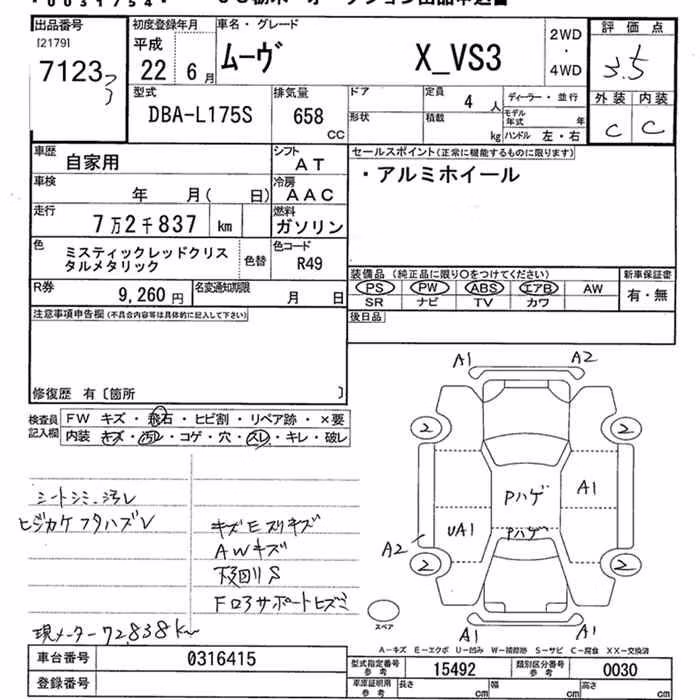 出品番号
[2179]
7123
3
初度登録年月
平成
22 年 6 月
車名・グレード
ムーヴ X_VS3
2WD
・
4WD
評価点
3.5
外装 内装
C C
型式
DBA-L175S
排気量
658 CC
ドア
定員
4 人
形状
積載
kg
ディーラー・並行
モデル年式 年
ハンドル 左・右
車歴
自家用
シフト
AT
車検
年 月( 日)
冷房
AAC
走行
7万2千837 km
燃料
ガソリン
色
ミスティックレッドクリス
タルメタリック
色替
色コード
R49
R券
9,260 円
名変通知期限
月 日
セールスポイント(正常に機能するものに限ります)
・アルミホイール
装備品(純正品に限り○をつけてください)
PS PW ABS エアB AW
SR ナビ TV カワ
新車保証書
有・無
後日品
注意事項申告欄(不具合内容等は具体的に記入して下さい)
修復歴 有〔箇所 〕
検査員
記入欄
FW キズ・飛石・ヒビ割・リペア跡・×要
内装 キズ・汚レ・コゲ・穴・スレ・キレ・破レ
シートシミ、汚レ
ヒジカケフタハズレ
キズEスリキズ
AWキズ
下回りS
Fロアサポートヒズミ
現メーター72838km
A1 A2
2 2
Pハゲ A1
UA1 Pハゲ
A2
2 2
A1 A1
スペア
A-キズ E-エクボ U-凹み W-補修跡 S-サビ C-腐食 XX-交換済
車台番号 0316415
登録番号
型式指定番号
参考
15492
類別区分番号
参考
0030
車庫証明用
参考
長さ cm 幅 cm 高さ cm